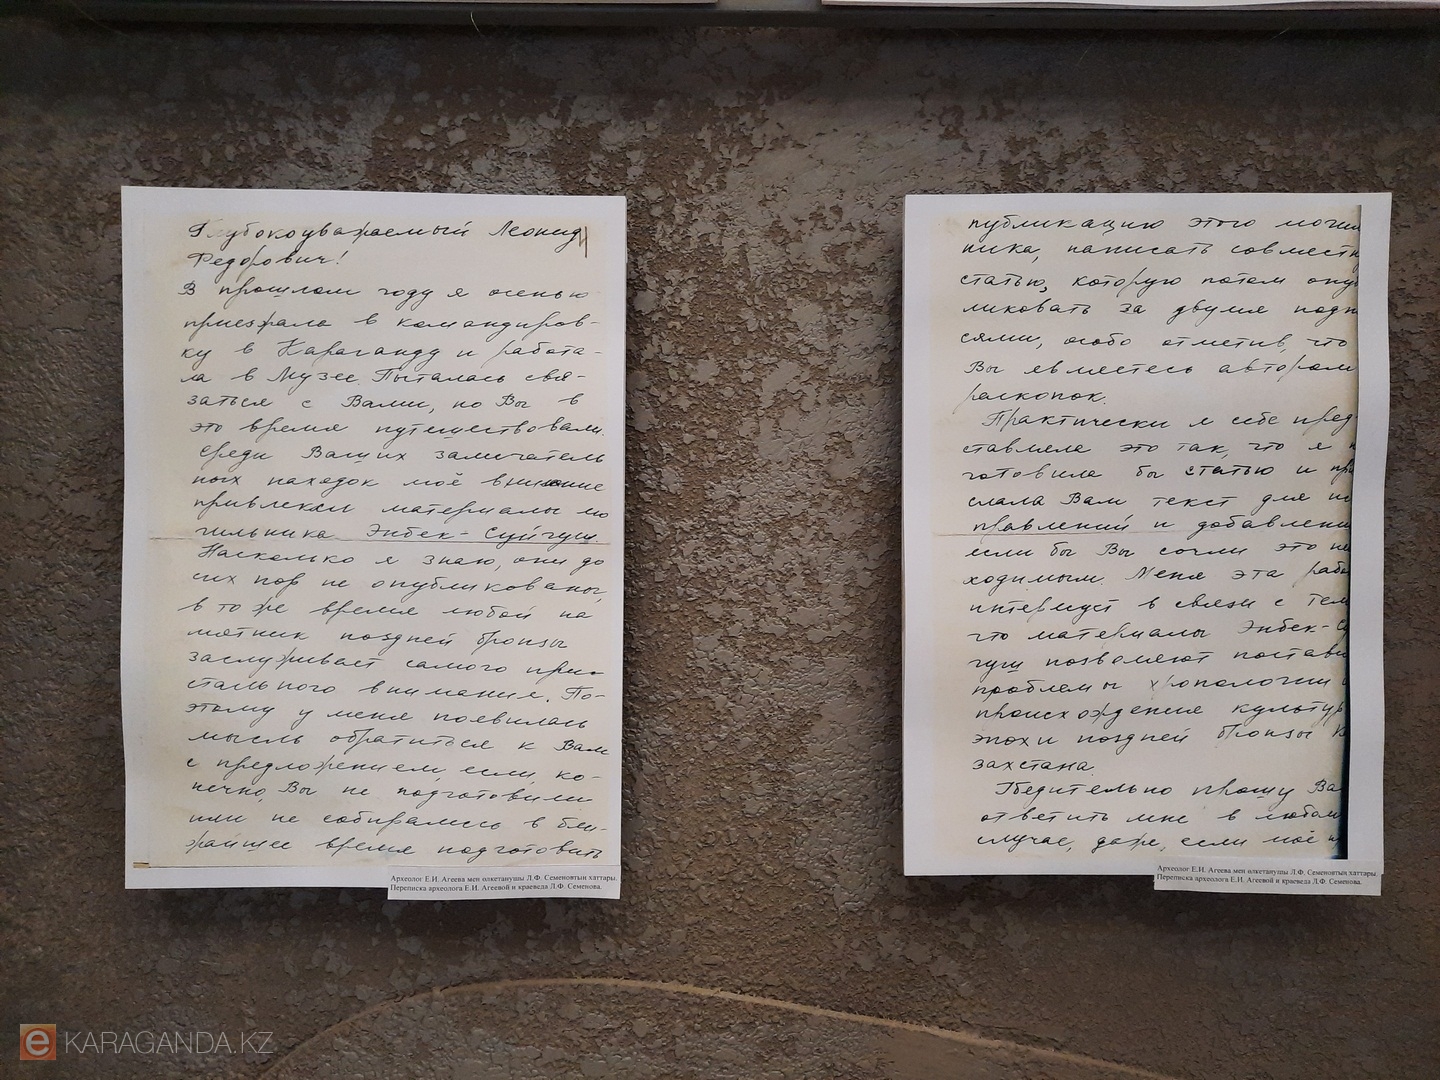 Глубокоуважаемый Леонид
Федорович!
В прошлом году я осенью
приезжала в командиров-
ку в Караганду и работа-
ла в Музее. Пыталась свя-
заться с Вами, но Вы в
это время путешествовали.
Среди Ваших замечатель
ных находок моё внимание
привлекли материалы мо
гильника Энбек-Суйгуш.
Насколько я знаю, они до
сих пор не опубликованы,
в то же время любой па
мятник поздней бронзы
заслуживает самого при-
стального внимания. По-
этому у меня появилась
мысль обратиться к Вам
с предложением, если, ко-
нечно, Вы не подготовили
или не собирались в бли-
жайшее время подготовить
Археолог Е.И. Агеева мен өлкетанушы Л.Ф. Семеновтың хаттары.
Переписка археолога Е.И. Агеевой и краеведа Л.Ф. Семенова.
публикацию этого могил
ника, написать совместн
статью, которую потом опу
ликовать за двумя подп
сями, особо отметив, что
Вы являетесь автором
раскопок.
Практически я себе пред-
ставляла это так, что я п
готовила бы статью и при
слала Вам текст для ис
правлений и добавлени
если бы Вы сочли это не
ходимым. Меня эта рабо
интересует в связи с тем
что материалы Энбек-Су
гуш позволяют постави
проблемы хронологии и
происхождения культур
эпохи поздней бронзы К
захстана.
Убедительно прошу Ва
ответить мне в любом
случае, даже, если моё п
Археолог Е.И. Агеева мен өлкетанушы Л.Ф. Семеновтың хаттары.
Переписка археолога Е.И. Агеевой и краеведа Л.Ф. Семенова.
e KARAGANDA.KZ